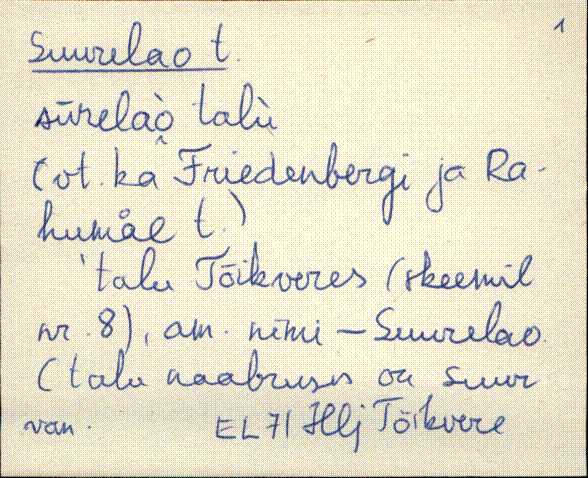 1
Suurelao t.
sūrelaò talù
(vt. ka Friedenbergi ja Ra-
humäe t.)
'talu Tõikveres (skeemil
nr. 8), am. nimi – Suurelao
(talu naabruses on suur
van. EL 71 Hlj Tõikvere